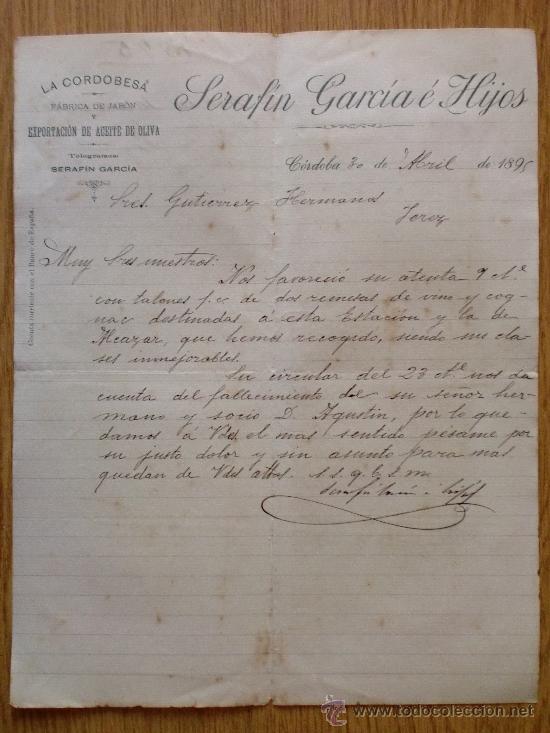 LA CORDOBESA
FÁBRICA DE JABÓN
Y
EXPORTACIÓN DE ACEITE DE OLIVA
Telegramas:
SERAFÍN GARCÍA
Serafín García é Hijos
Córdoba 30 de Abril de 1895
Cuenta corriente con el Banco de España.
Sres. Gutierrez Hermanos
Jerez
Muy Sres nuestros:
Nos favoreció su atenta 9 ct.
con talones f.c. de dos remesas de vino y cog-
nac destinadas á esta Estación y la de
Alcazar, que hemos recogido, siendo sus cla-
ses inmejorables.
Su circular del 23 ct. nos da
cuenta del fallecimiento del su señor her-
mano y socio D. Agustin, por lo que
damos á Vds. el mas sentido pésame por
su justo dolor y sin asunto para mas
quedan de Vds attos. s. s. q. b. s. m.
Serafín García é Hijos
todocoleccion
http://www.todocoleccion.net